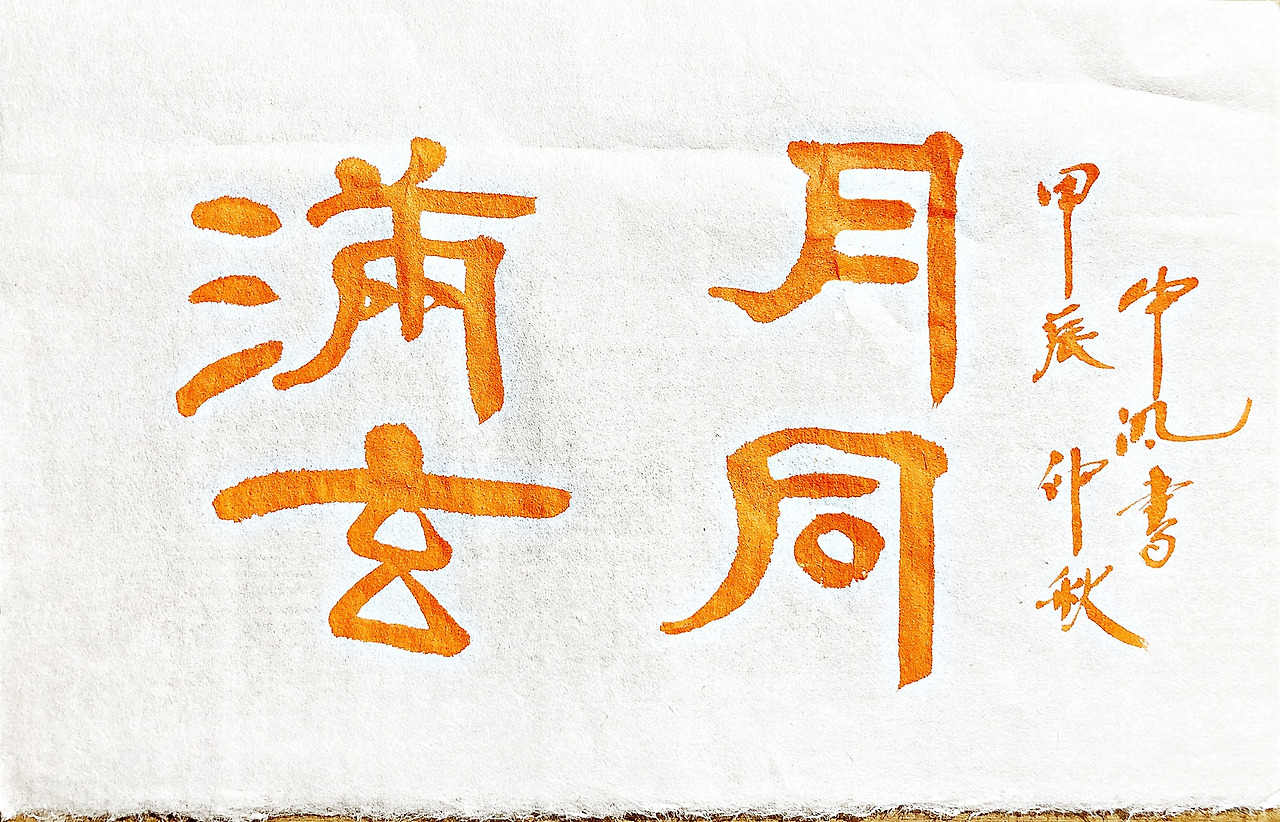 满月
玄同
甲辰仲秋
中汎書